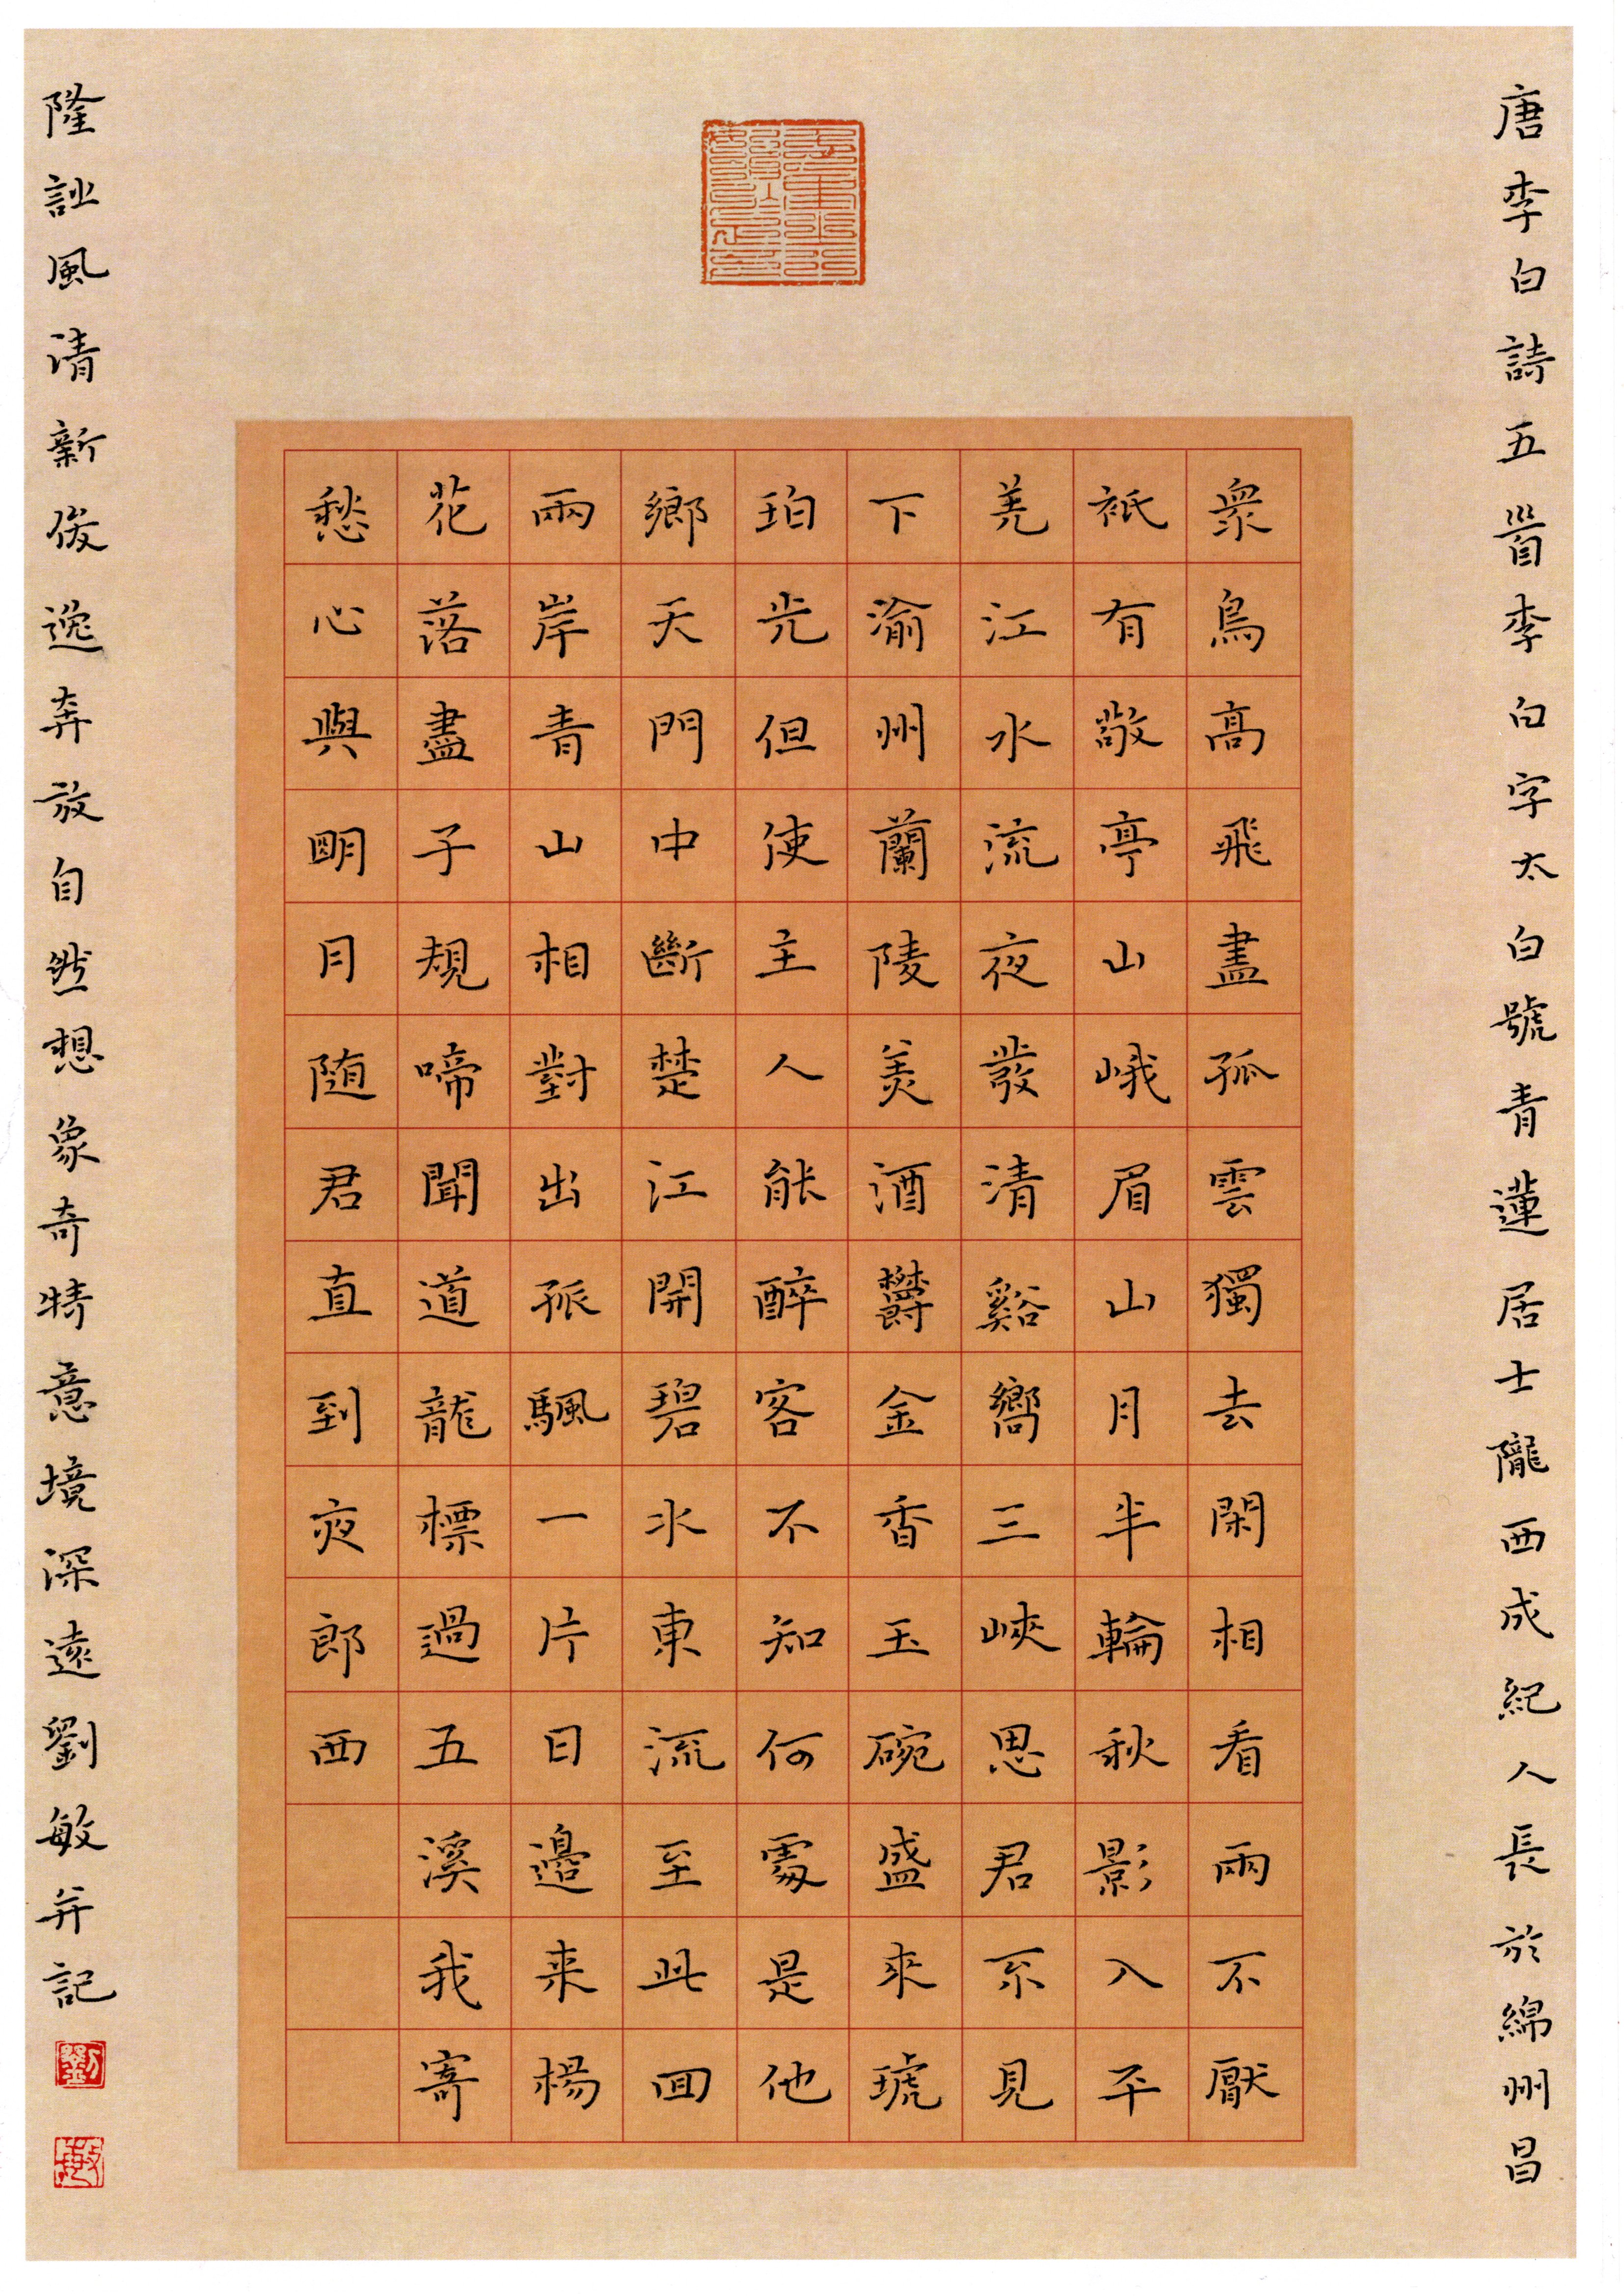 唐李白詩五首李白字太白號青蓮居士隴西成紀人長於綿州昌
衆鳥高飛盡孤雲獨去閑相看兩不厭
祇有敬亭山峨眉山月半輪秋影入平
羌江水流夜發清谿嚮三峽思君不見
下渝州蘭陵美酒鬱金香玉碗盛來琥
珀光但使主人能醉客不知何處是他
鄉天門中斷楚江開碧水東流至此回
兩岸青山相對出孤颿一片日邊来楊
花落盡子規啼聞道龍標過五溪我寄
愁心與明月随君直到夜郎西
隆詩風清新俊逸奔放自然想象奇特意境深遠劉敏并記
劉
敏